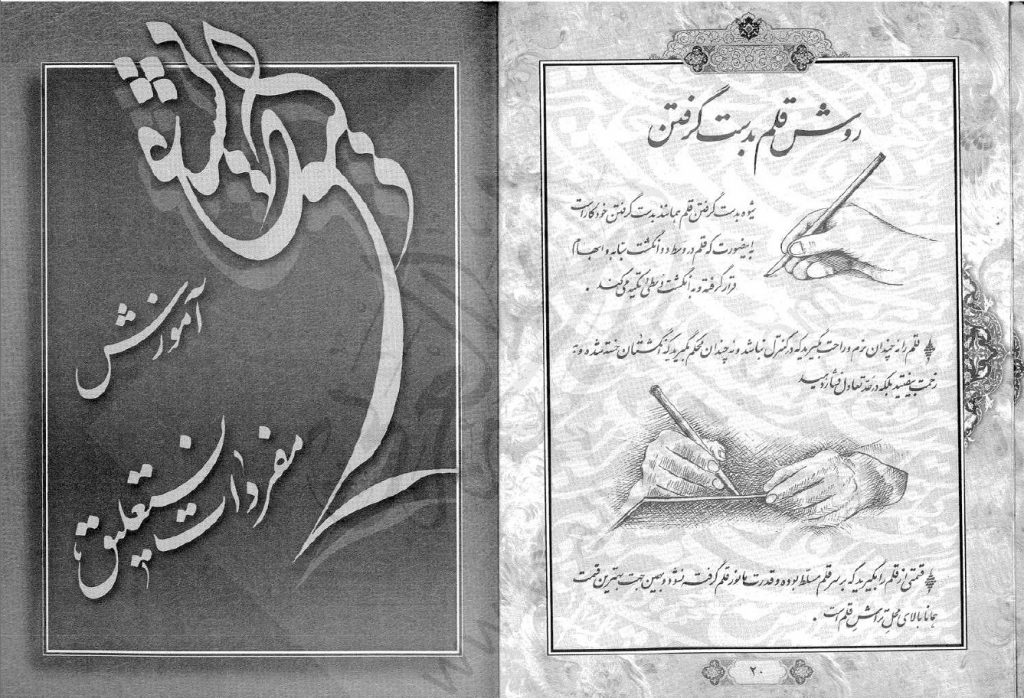 روش قلم بدست گرفتن
شیوه بدست گرفتن قلم همانند بدست گرفتن خودکار است
باینصورت که قلم در وسط دو انگشت سبابه و ابهام
قرار گرفته و به انگشت وسطی تکیه می‌کند .
قلم را نه چندان نرم و راحت بگیرید که در کنترل نباشد و نه چندان محکم بگیرید که انگشتان خسته شده و به
زحمت بیفتید بلکه در حد تعادل فشار دهید
قسمتی از قلم را بگیرید که بر سر قلم مسلط بوده و قدرت مانور قلم گرفته نشود و بهمین جهت بهترین قسمت
همانا بالای محل تراش قلم است .
۲۰
آموزش
مفردات نستعلیق